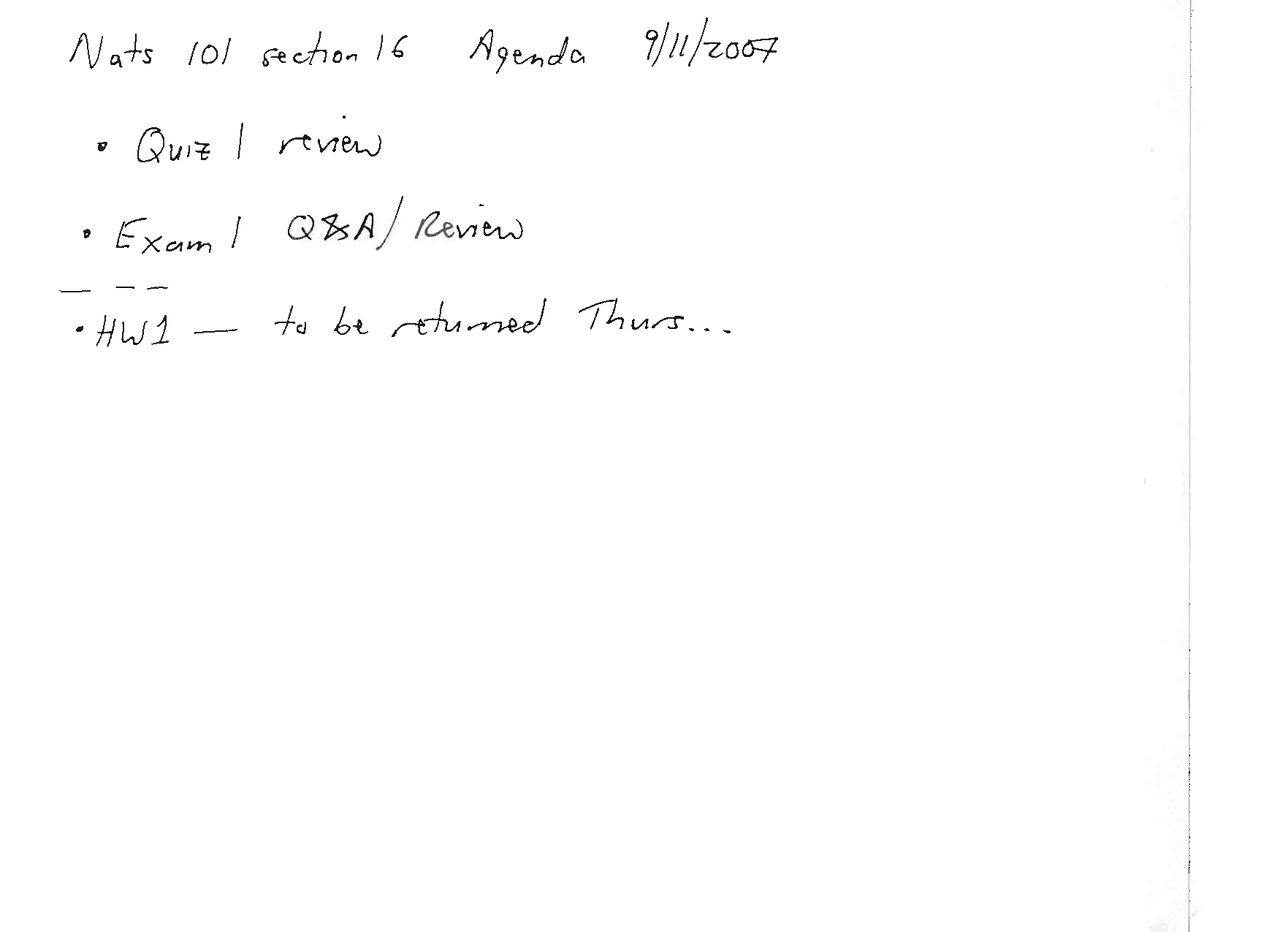 Nats 101 section 16 Agenda 9/11/2007
• Quiz 1 review
• Exam 1 Q&A/Review
— — —
• HW1 — to be returned Thurs...